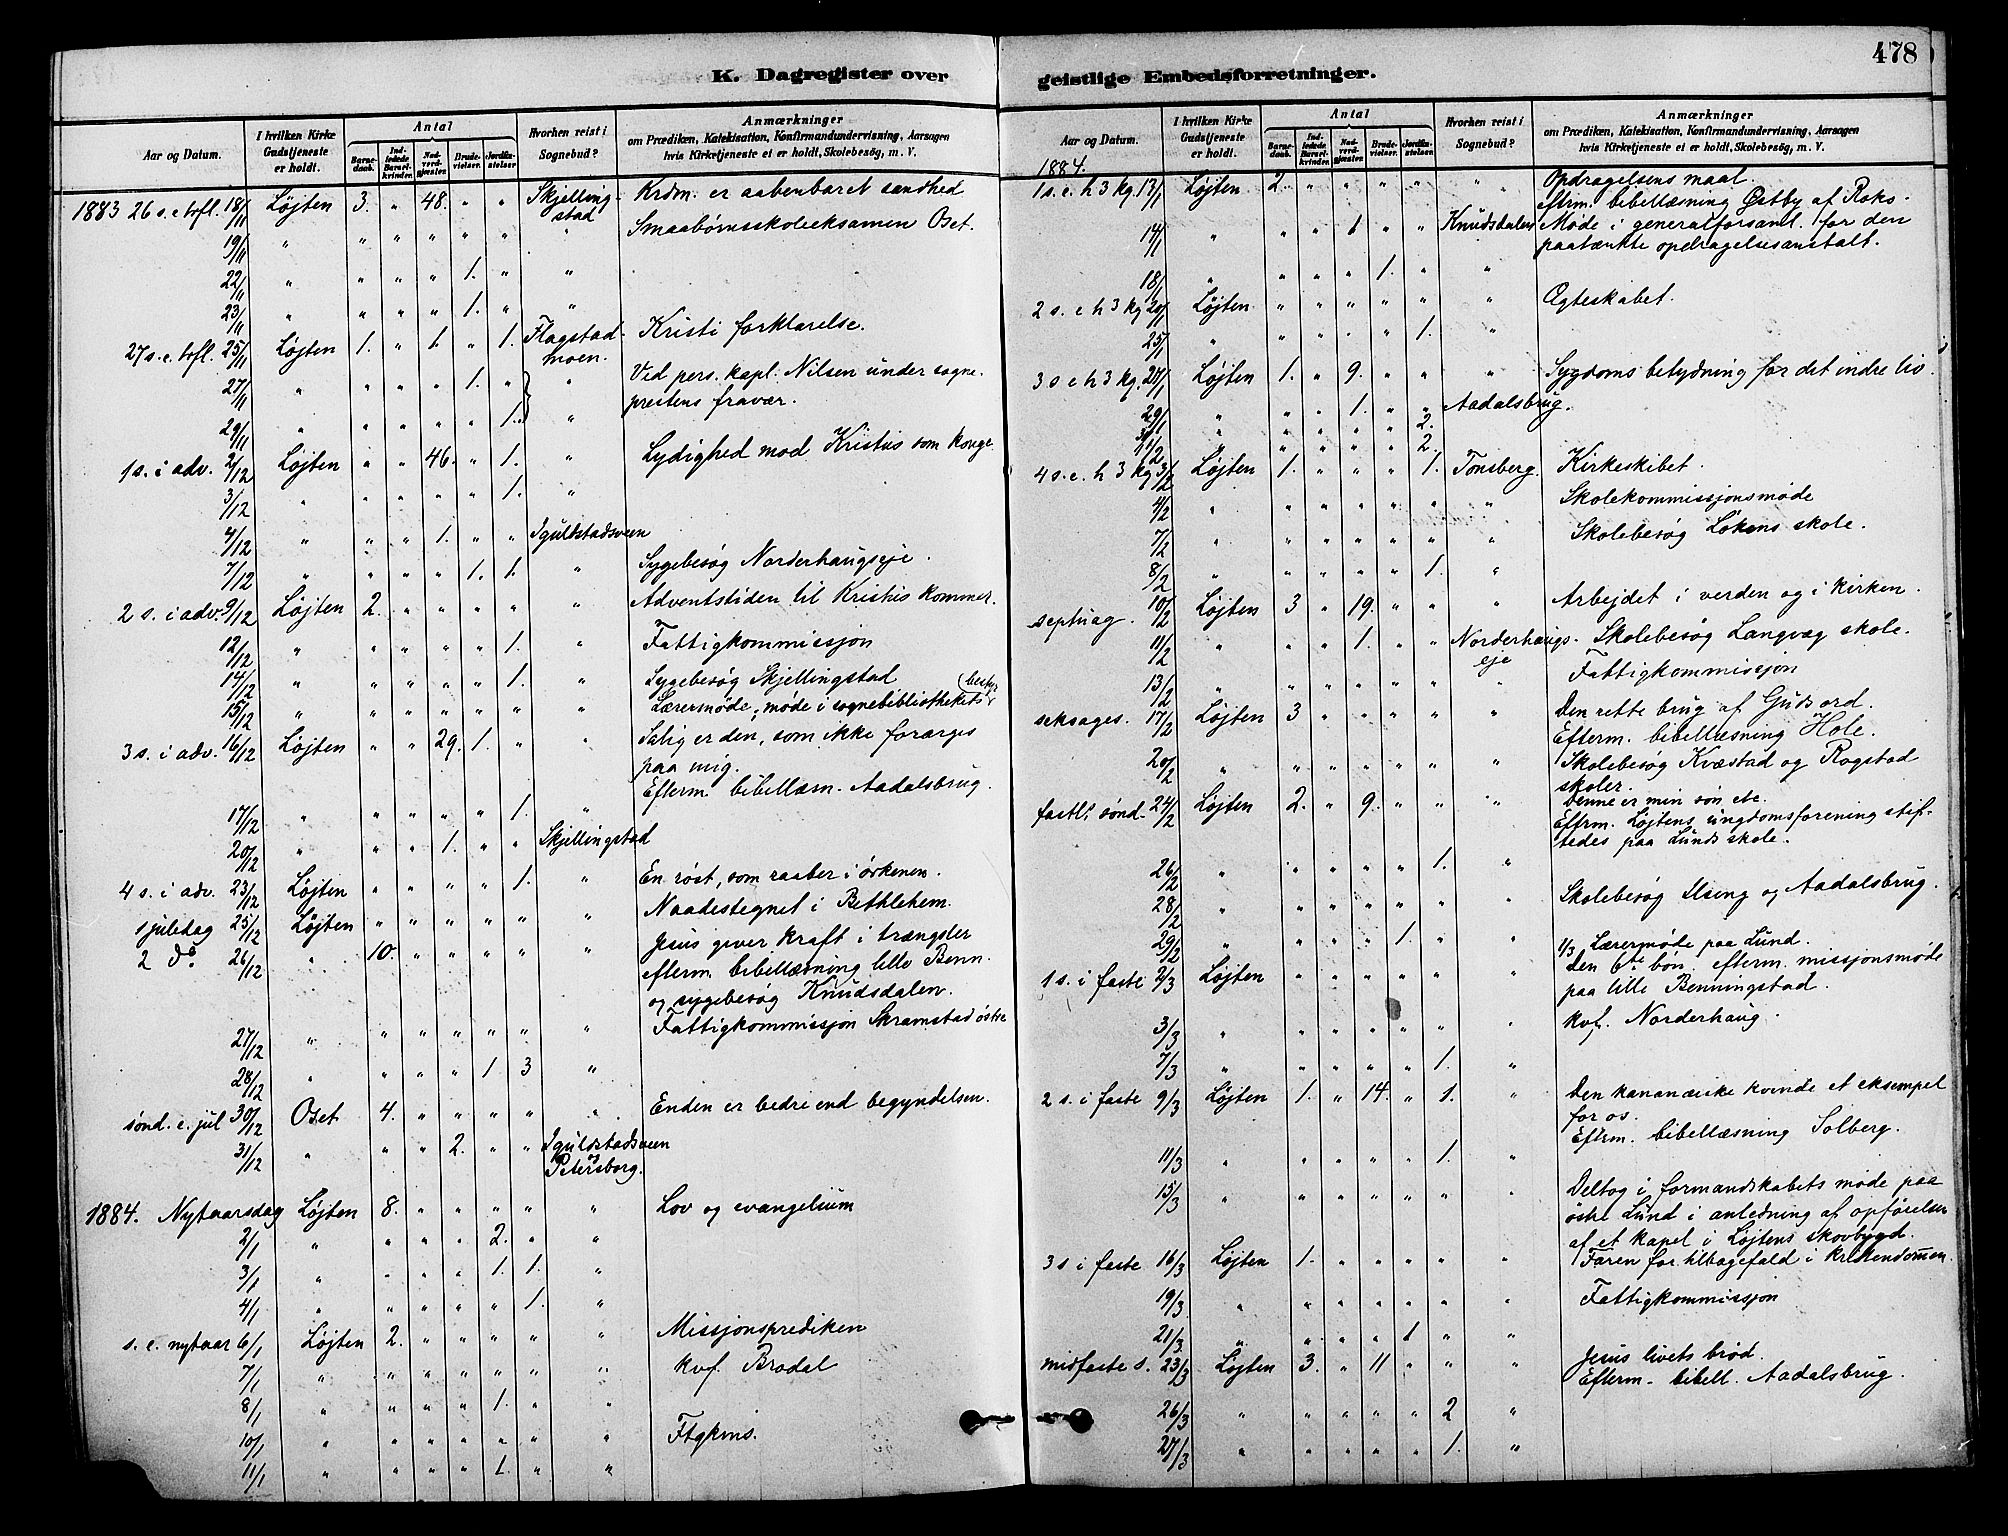 K. Dagregister over
Aar og Datum. I hvilken Kirke Gudstjeneste er holdt. Antal Barnedaab. Indledede Barselkvinder. Nadverdgjæster. Brudevielser. Jordfæstelser. Hvorhen reist i Sognebud? Anmærkninger om Prædiken, Katekisation, Konfirmandundervisning, Aarsagen hvis Kirketjeneste et er holdt, Skolebesøg, m. V.
1883 26 s. e. trfl. 18/11 Løjten 3. " 48. " " Skjellingstad Krdm. er aabenbaret sandhed
19/11 " " " " " " " Smaabørnsskoleeksamen Oset.
22/11 " " " " 1. " "
23/11 " " " " 1. " "
27 s. e. trfl. 25/11 Løjten 1. " 1. " 1. Flagstadmoen. Kristi forklarelse.
27/11 " " " " 1. " " Ved pers. kapl. Nilsen under sogne-
29/11 " " " " " 1. " prestens fravær.
1 s. i adv. 2/12 Løjten " " 46. " 1. " Lydighed mod Kristus som konge
3/12 " " " " " 1. "
4/12 " " " 1. " " Iguldstadsveen
7/12 " " " " 1. 1. " Sygebesøg Norderhaugseje.
2 s. i adv. 9/12 Løjten 2. " " " " " Adventstiden til Kristus kommer.
12/12 " " " " " 1. " Fattigkommissjon
14/12 " " " " " 1. " Sygebesøg Skjellingstad
15/12 " " " " " " " Lærermøde, møde i sognebibliothekets (besty-
3 s. i adv. 16/12 Løjten " " 29. 1. " " Salig er den, som ikke forarges
paa mig.
Efterm. bibellæsn. Aadalsbrug.
17/12 " " " " " 1. "
20/12 " " " 1. " " Skjellingstad
4 s. i adv. 23/12 Løjten " " " " 1. " En røst, som raaber i ørkenen.
1 juledag 25/12 Løjten " " " " " " Naadestegnet i Bethlehem.
2 do. 26/12 " 10. " " " " " Jesus giver kraft i trængsler
efterm. bibellæsning lille Benn.
og sygebesøg Knudsdalen.
27/12 " " " " " " " Fattigkommissjon Skramstad østre
28/12 " " " " 1 3 "
sønd. e. jul 30/12 Oset 4. " " " " " Enden er bedre end begyndelsen.
31/12 " " " 2. " " Iguldstadsveen og Petersborg.
1884. Nytaarsdag Løjten 8. " " " " " Lov og evangelium
2/1 " " " " 2. " "
3/1 " " " " 1. 1. "
4/1 " " " " " 1. "
s. e. nytaar 6/1 Løjten 2. " " " " " Missjonsprediken
7/1 " " " " " " " kvf. Brodal
8/1 " " " " 1. " "
10/1 " " " " " " " Ftgkms.
11/1 " " " " 1. " "
478
geistlige Embedsforretninger.
Aar og Datum. I hvilken Kirke Gudstjeneste er holdt. Antal Barnedaab. Indledede Barselkvinder. Nadverdgjæster. Brudevielser. Jordfæstelser. Hvorhen reist i Sognebud? Anmærkninger om Prædiken, Katekisation, Konfirmandundervisning, Aarsagen hvis Kirketjeneste et er holdt, Skolebesøg, m. V.
1884.
1 s. e. h 3 kg 13/1 Løjten 2. " " " " " Opdragelsens maal.
eftrm. bibellæsning Østby af Roks.
14/1 " " " 1 " " Knudsdalen Møde i generalforsaml. for den
paatænkte opdragelsesanstalt.
18/1 " " " " 1. " "
2 s. e h 3 kg 20/1 Løjten " " " " " " Ægteskabet.
25/1 " " " " " 1. "
3 s e h 3 kg. 27/1 Løjten 1. " 9. " " " Sygdoms betydning for det indre liv.
29/1 " " " 1. " 2. Aadalsbrug.
1/2 " " " " " 2. "
4 s. e. h 3 kg 3/2 Løjten 1. " " " 1. Tønsberg. Kirkeskibet.
4/2 " " " " " " " Skolekommissjonsmøde
7/2 " " " " " " " Skolebesøg Løkens skole.
8/2 " " " " " 1. "
septuag. 10/2 Løjten 3 " 19. " " " Arbejdet i verden og i kirken.
11/2 " " " 1. " " Norderhaugseje Skolebesøg Langvæg skole.
13/2 " " " " " " " Fattigkommissjon
seksages. 17/2 Løjten 3 " " " " " Den rette brug af Guds ord.
Efterm. bibellæsning Hole.
20/2 " " " " " " " Skolebesøg Kvæstad og Rogstad
skoler.
fastl. sønd. 24/2 Løjten 2. " 9. " " " Denne er min søn etc.
Eftrm. Løjtens ungdomsforening stif-
tedes paa Lunds skole.
26/2 " " " " " 1. "
28/2 " " " " " " " Skolebesøg Ilseng og Aadalsbrug.
29/2 " " " " 1. " " 1/3 Lærermøde paa Lund.
1 s. i faste 2/3 Løjten " " " " " " Den 6te bøn. efterm. missjonsmøde
paa lille Benningstad.
3/3 " " " " " " " kvf. Norderhaug.
7/3 " " " " " 1. "
2 s. i faste 9/3 Løjten 1. " 14. " 1. " Den kananæiske kvinde et eksempel
for os.
Eftrm. bibellæsning Solberg.
11/3 " " " " " 1. "
15/3 " " " " " " " Deltog i formandskabets møde paa
østre Lund i anledning af opførelsen
af et kapel i Løjtens skovbygd.
3 s i faste 16/3 Løjten 1. " " " " " Faren for tilbagefald i kristendommen.
19/3 " " " " " " " Fattigkommissjon
21/3 " " " " 1 " "
midfaste s. 23/3 Løjten 3. " 11 " " " Jesus livets brød.
Efterm. bibell. Aadalsbrug.
26/3 " " " " " 2 "
27/3 " " " " " 1. "